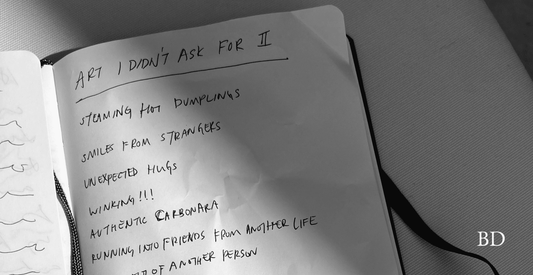 ART I DIDN'T ASK FOR II
STEAMING HOT DUMPLINGS
SMILES FROM STRANGERS
UNEXPECTED HUGS
WINKING!!!
AUTHENTIC CARBONARA
RUNNING INTO FRIENDS FROM ANOTHER LIFE
OF ANOTHER PERSON
BD